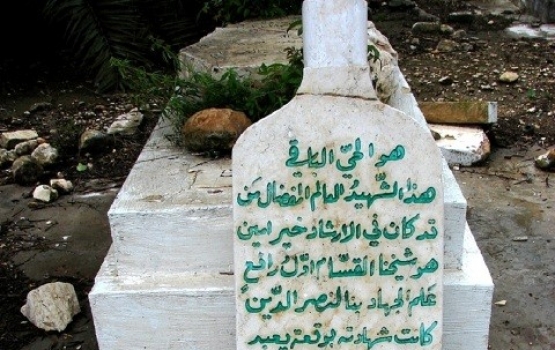 هو الحيّ الباقي
هذا الشّهيدُ العالم المفضال مَن
قد كان في الارشاد خير امين
هو شيخنا القسّام اوّل رافعٍ
عَلَم الجهاد بنا لنصر الدّين
كانت شهادته بوقعة يعبد